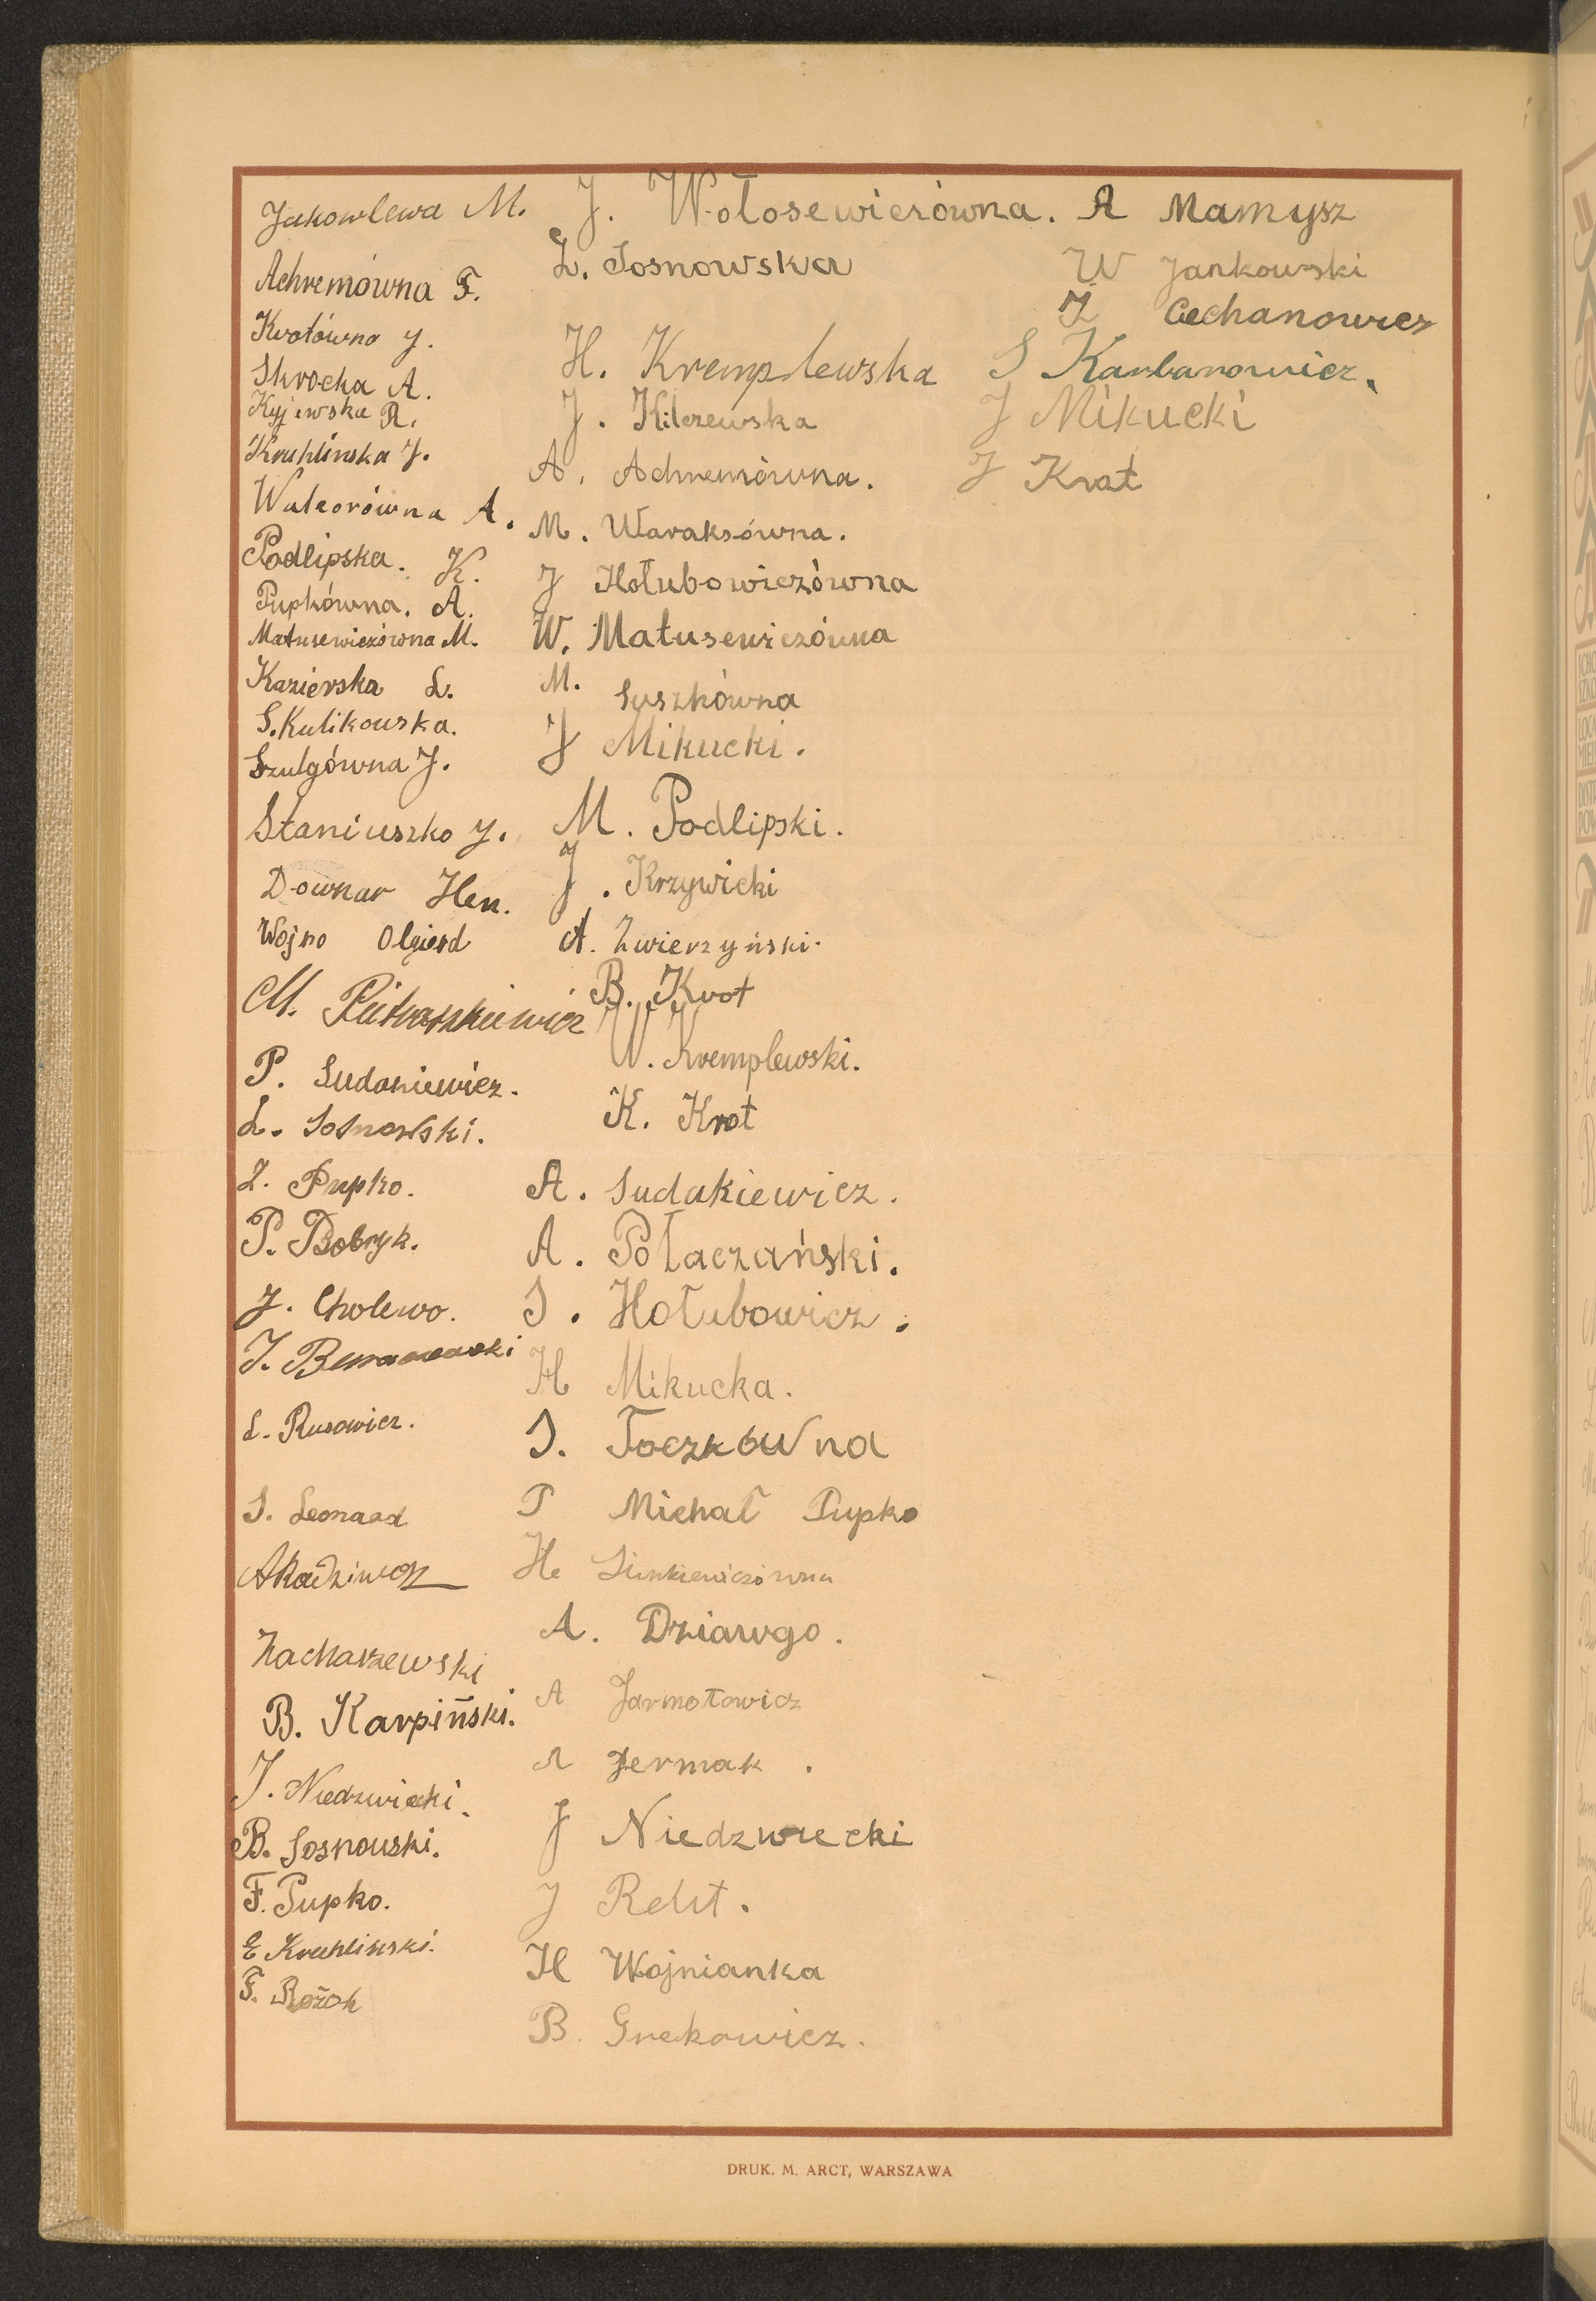 Jakowlewa M.
Achremówna F.
Krotówna J.
Skrocka A.
Kijewska R.
Kruhlinska J.
Walcorówna A.
Podlipska. K.
Pupkówna. A.
Matusewiczówna M.
Kazierska L.
S. Kulikowska.
Szulgówna J.
Staniuszko J.
Downar Hen.
Wojno Olgierd
M. Pietraszkiewicz
P. Sudakiewicz.
L. Sosnowski.
Z. Pupko.
P. Bobryk.
J. Cholewo.
J.
L. Rusowicz.
S. Leonard
Zacharzewski
B. Karpiński.
J. Niedzwiecki.
B. Sosnowski.
F. Pupko.
E Kruhlinski.
F. Rożok
J. Wołosewiczówna.
Z. Sosnowska
H. Kremplewska
J. Kilczewska
A. Achremówna.
M. Waraksówna.
J Hołubowiczówna
W. Matusewiczówna
M. Suszkówna
J Mikucki.
M. Podlipski.
J. Krzywicki
A. Zwierzyński.
B. Krot
W. Kremplewski.
K. Krot
A. Sudakiewicz.
A. Połaczański.
S. Hołubowicz.
H Mikucka.
S. Toczkówna
P Michał Pupko
He Sienkiewiczówna
A. Dziawgo.
A Jarmołowicz
A Jermak.
J Niedzwiecki
J Relit.
H Wojnianka
B. Grekowicz.
A Mamysz
W Jankowski
Z Ciechanowicz
S Karbanowicz.
J Mikucki
J Krot
DRUK. M. ARCT, WARSZAWA